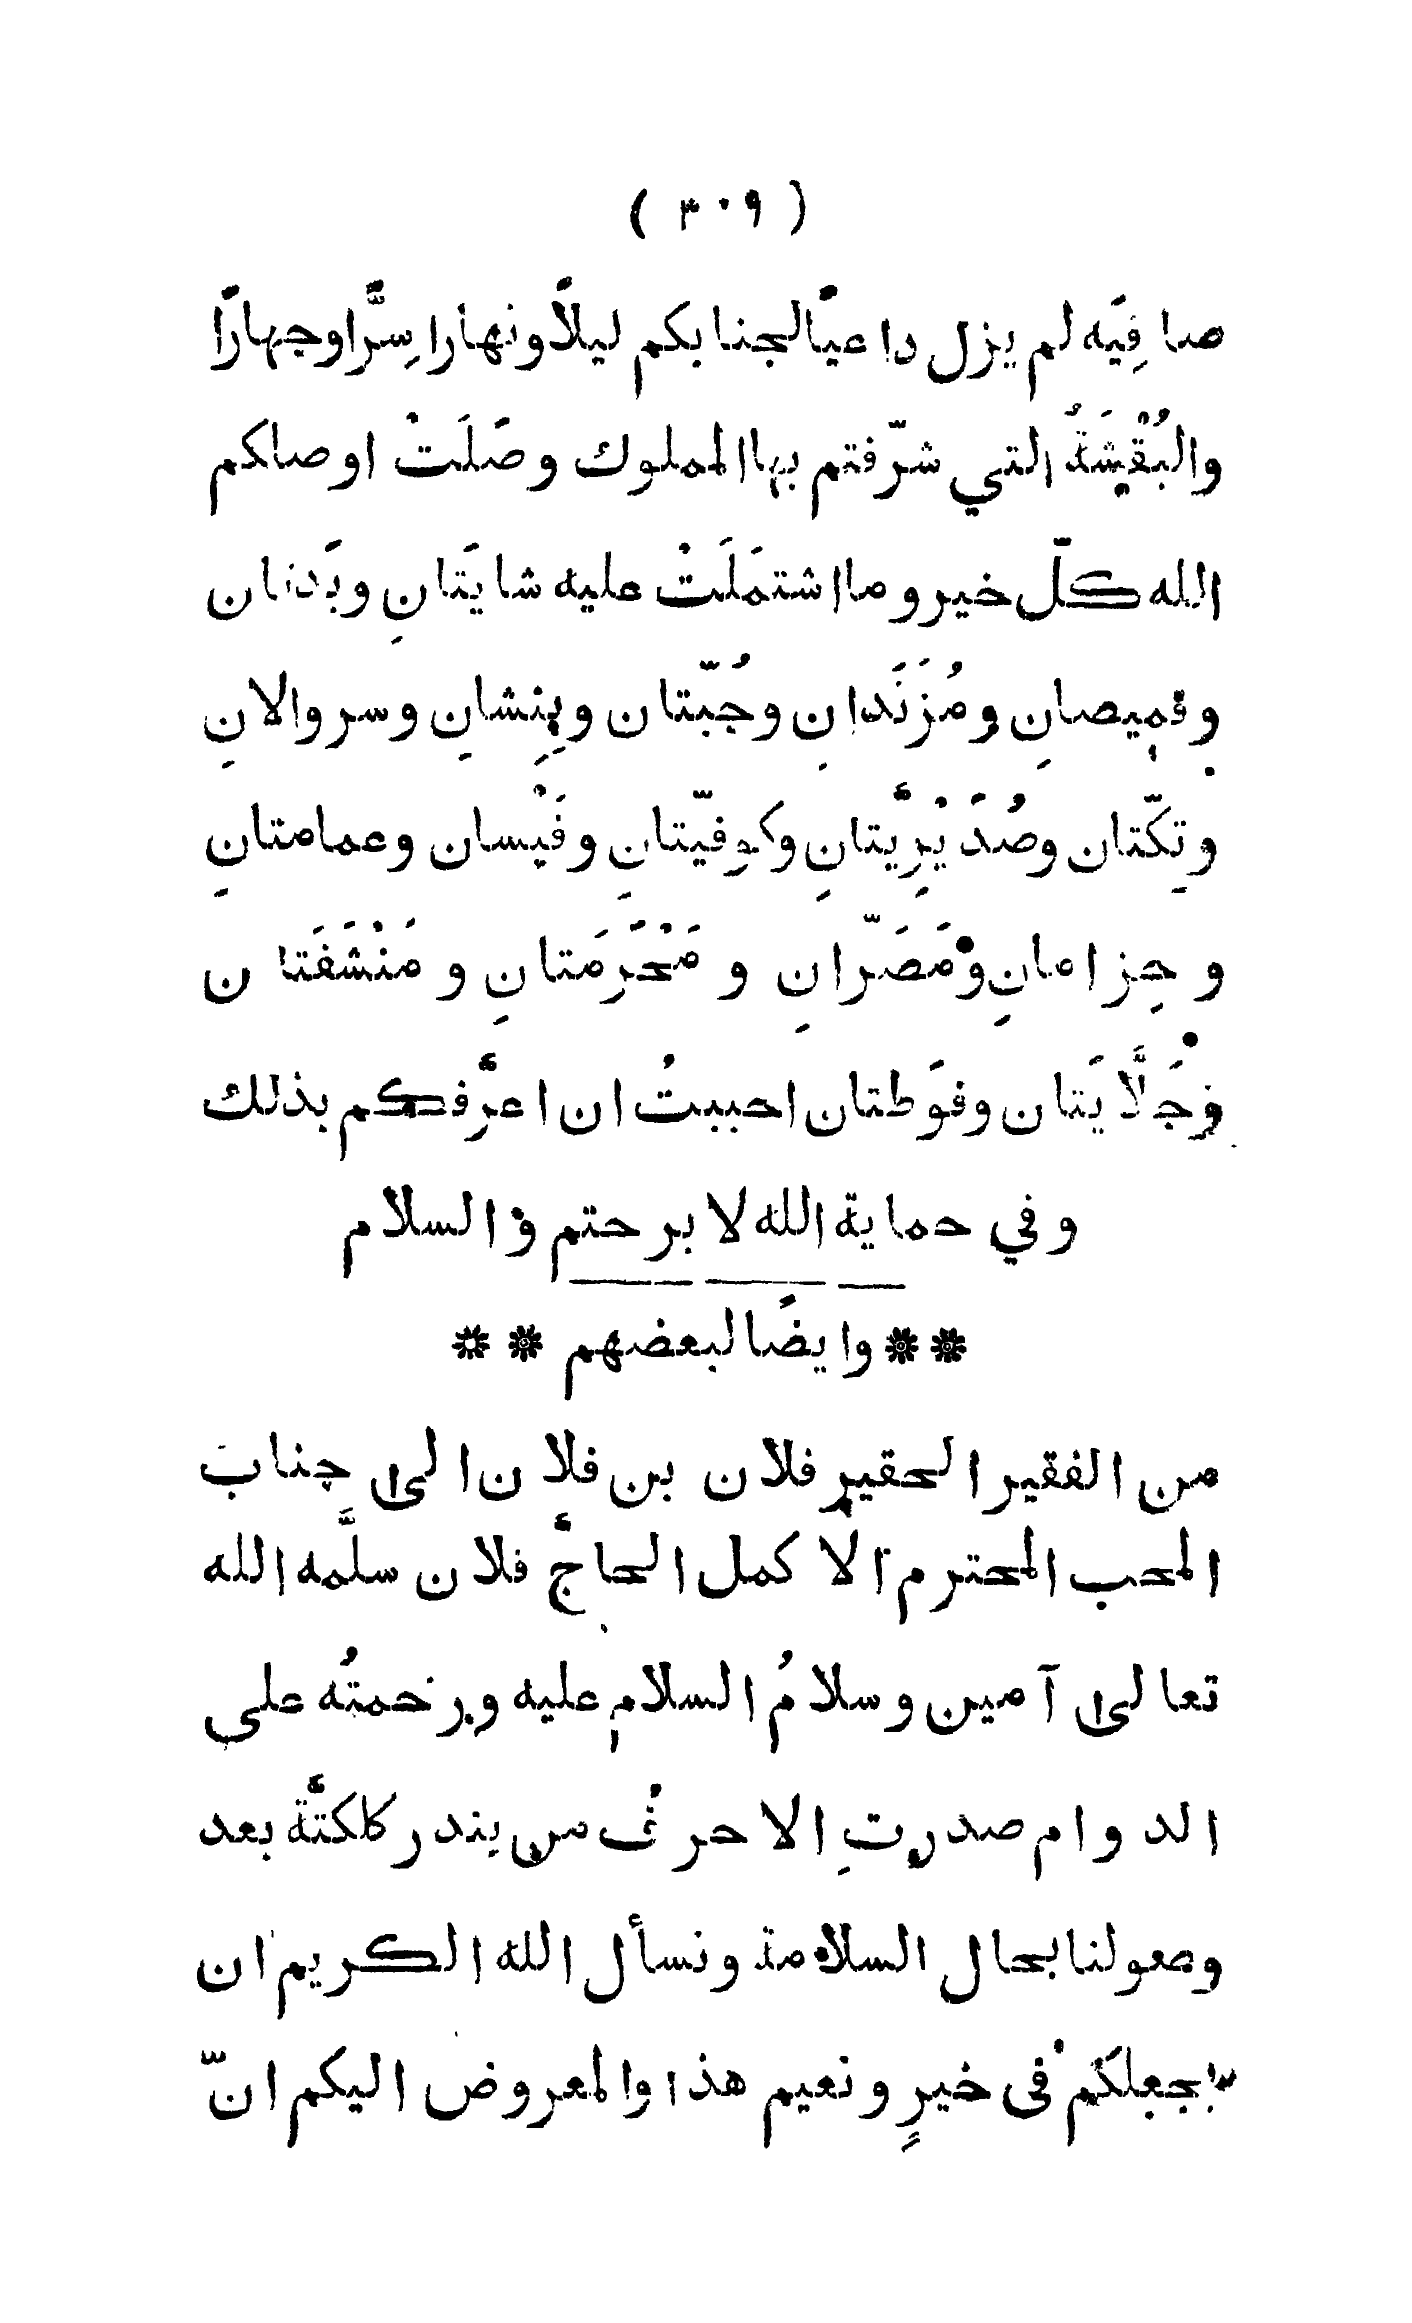 ( ٣٠٩ )
صافِيَه لم يزل داعيًا لجنابكم ليلًا ونهارا سِرًّا وجهارًا
والبُقْشَةُ التي شرّفتم بها المملوك وصَلَتْ اوصلكم
الله كلّ خير وما اشتمَلَتْ عليه شايَتانِ وبَدنان
وقميصانِ ومُزَنَدانِ وجُبّتان وبِنِشانِ وسروالانِ
وتِكّتان وصُدَيْرِيَّتانِ وكوفِيّتانِ وفَيْسان وعمامتانِ
وحِزامانِ ومَصَرّانِ و مَحْرَمَتانِ و مَنْشَفَتان
وجَلَّايَتان وفوَطتان احببتُ ان اعرَّفكم بذلك
وفي حماية الله لا برحتم والسلام
** وايضًا لبعضهم **
من الفقير الحقير فلان بن فلان الى جناب
المحب المحترم الاكمل الحاجّ فلان سلَّمه الله
تعالى آمين وسلامُ السلام عليه ورحمتُه على
الدوام صدرتِ الاحرفُ من بندر كلكتَّة بعد
وصولنا بحال السلامة ونسأل الله الكريم ان
يجعلكم فى خيرٍ ونعيم هذا والمعروض اليكم انّ